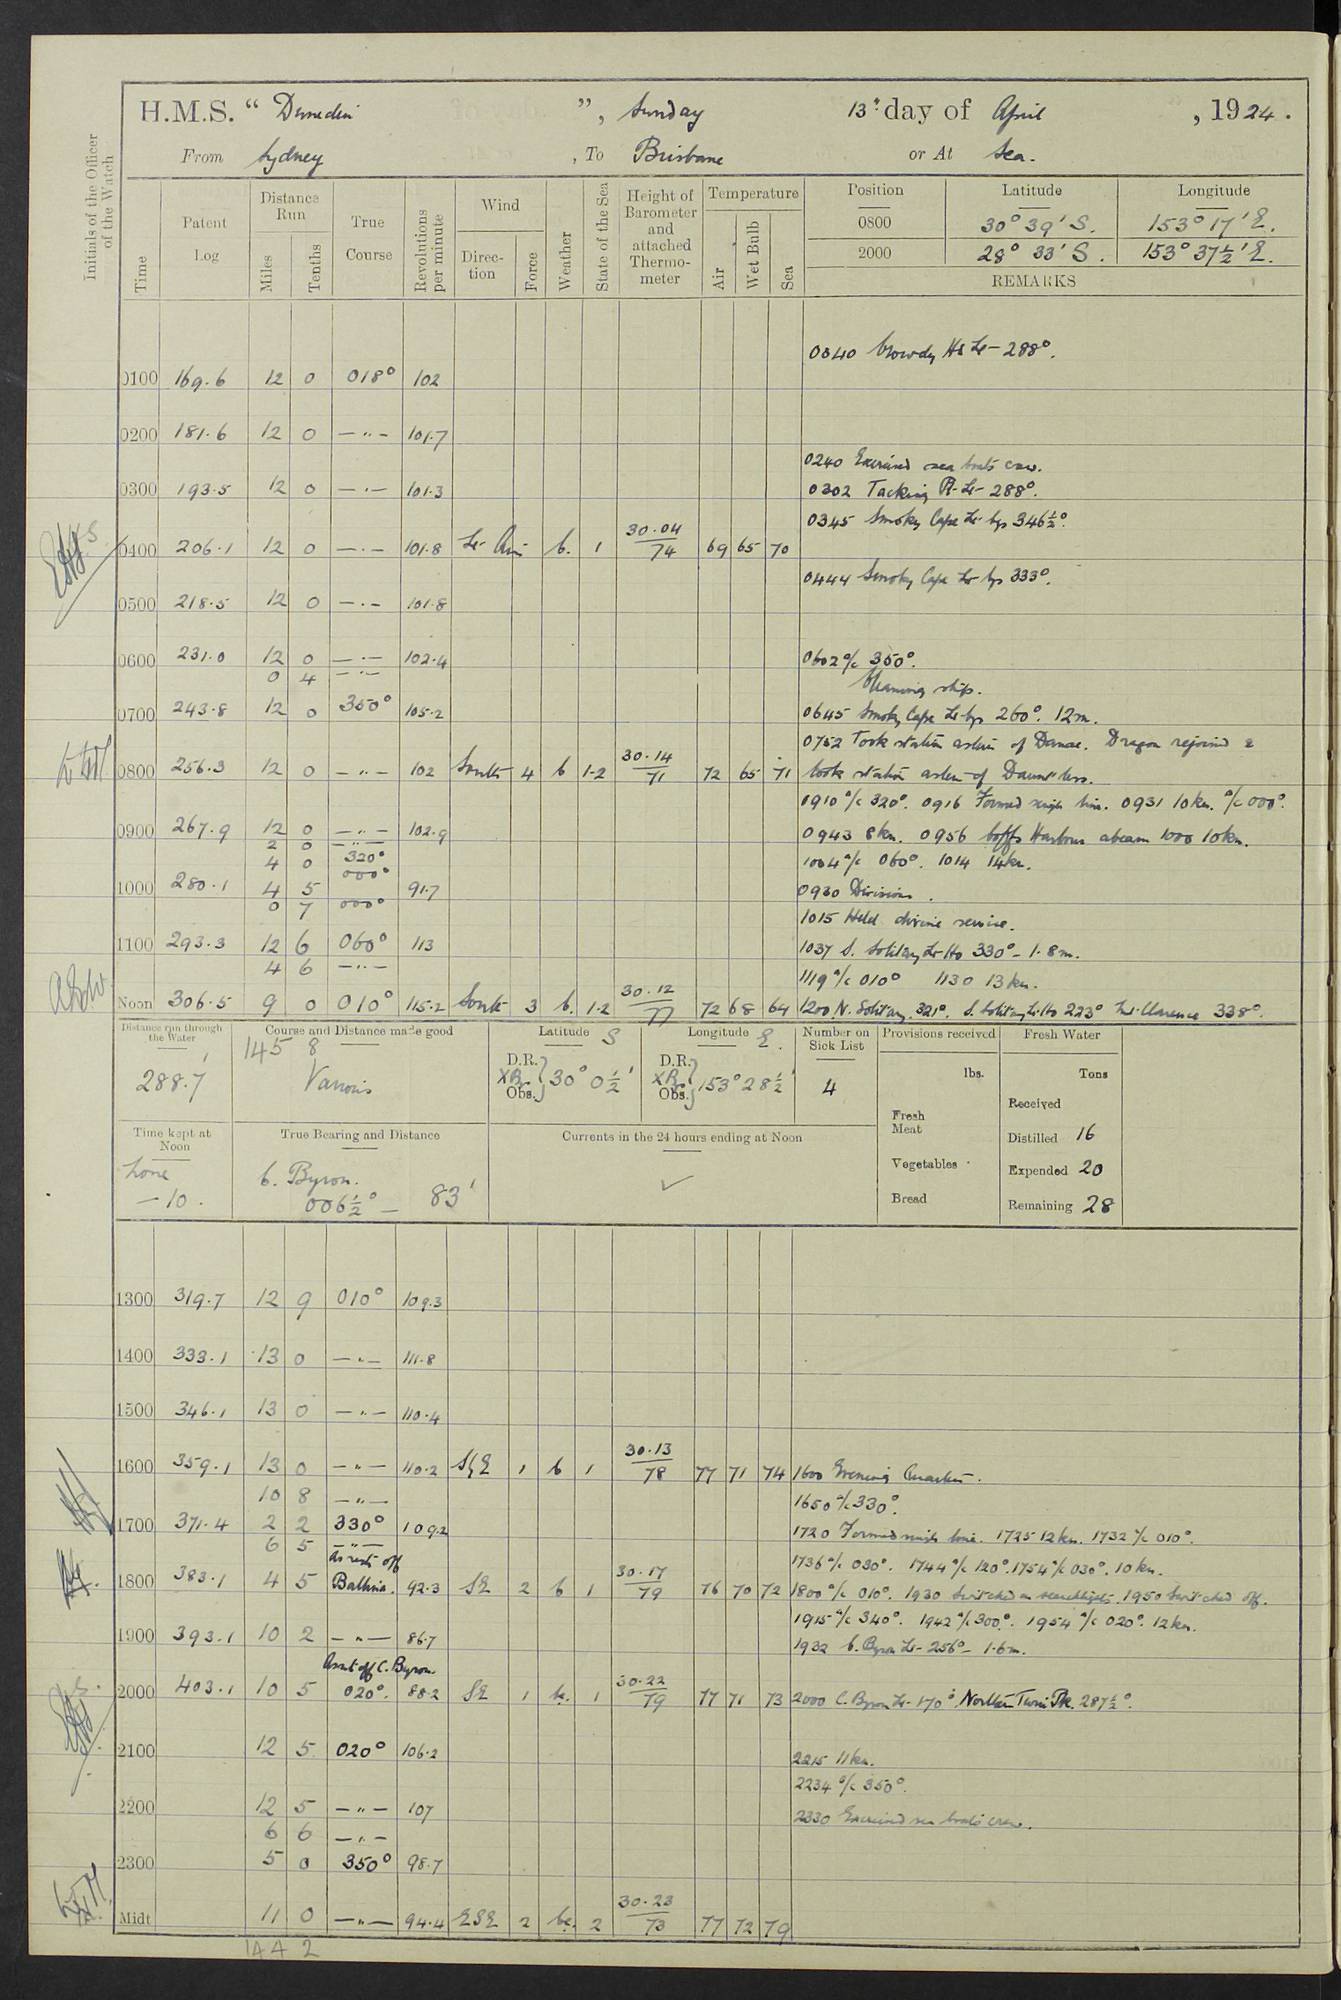 H.M.S. “ Dunedin ”, Sunday 13th day of April , 1924.
From Sydney , To Brisbane or At Sea.
Initials of the Officer of the Watch
Time
Patent Log
Distance Run
Miles
Tenths
True Course
Revolutions per minute
Wind
Direction
Force
Weather
State of the Sea
Height of Barometer and attached Thermometer
Temperature
Air
Wet Bulb
Sea
Position Latitude Longitude
0800 30° 39' S. 153° 17' E.
2000 28° 33' S. 153° 37½' E.
REMARKS
0040 Crowdy Hd Lt - 288°.
0100 169.6 12 0 018° 102
0200 181.6 12 0 —"— 101.7
0240 Exercised sea boats crew.
0300 193.5 12 0 —"— 101.3 0302 Tacking Pt Lt - 288°.
0345 Smoky Cape Lt bg 346½°.
0400 206.1 12 0 —"— 101.8 Lt Airs b. 1 30.04 / 74 69 65 70
0444 Smoky Cape Lt bg 333°.
0500 218.5 12 0 —"— 101.8
0600 231.0 12 0 —"— 102.4 0602 a/c 350°.
0 4 —"— Cleaning ship.
0700 243.8 12 0 350° 105.2 0645 Smoky Cape Lt bg 260°. 12m.
0752 Took station astern of Danae. Dragon rejoined &
0800 256.3 12 0 —"— 102 South 4 b 1-2 30.14 / 71 72 65 71 took station astern of Dauntless.
0910 a/c 320°. 0916 Formed single line. 0931 10kn. a/c 000°.
0900 267.9 12 0 —"— 102.9 0943 8kn. 0956 Coffs Harbour abeam 1000 10kn.
2 0 —"—
4 0 320° 1004 a/c 060°. 1014 14kn.
1000 280.1 4 5 000° 91.7 0930 Divisions.
0 7 000°
1015 Held divine service.
1100 293.3 12 6 060° 113 1037 S. Solitary Lt Ho 330° - 1.8m.
4 6 —"— 1119 a/c 010° 1130 13kn.
Noon 306.5 9 0 010° 115.2 South 3 b. 1-2 30.12 / 77 72 68 64 1200 N. Solitary 321°. S. Solitary Lt Ho 223° Clarence 338°.
Distance run through the Water
288.7'
Course and Distance made good
145 8
Various
Latitude S
D.R. X By Obs. 30° 0½'
Longitude E.
D.R. X By Obs. 153° 28½'
Number on Sick List
4
Provisions received
lbs.
Fresh Meat
Vegetables
Bread
Fresh Water
Tons
Received
Distilled 16
Expended 20
Remaining 28
Time kept at Noon
Zone
- 10.
True Bearing and Distance
C. Byron.
006½° — 83'
Currents in the 24 hours ending at Noon
✓
1300 319.7 12 9 010° 109.3
1400 333.1 13 0 —"— 111.8
1500 346.1 13 0 —"— 110.4
1600 359.1 13 0 —"— 110.2 SxE 1 b 1 30.13 / 78 77 71 74 1600 Evening Quarters.
10 8 —"— 1650 a/c 330°.
1700 371.4 2 2 330° 109.2 1720 Formed single line. 1725 12kn. 1732 a/c 010°.
6 5 —"—
As reqte off 1736 a/c 030°. 1744 a/c 120°. 1754 a/c 030°. 10kn.
1800 383.1 4 5 Ballina. 92.3 SE 2 b 1 30.17 / 79 76 70 72 1800 a/c 010°. 1930 Switched on searchlights. 1950 Switched off.
1915 a/c 340°. 1942 a/c 300°. 1954 a/c 020°. 12kn.
1900 393.1 10 2 —"— 86.7 1932 C. Byron Lt - 256° - 1.6m.
As reqt off C. Byron.
2000 403.1 10 5 020°. 88.2 SE 1 bc. 1 30.22 / 79 77 71 73 2000 C. Byron Lt - 170°. Northern Twin Pk. 287½°.
2100 12 5 020° 106.2
2215 11kn.
2234 a/c 350°.
2200 12 5 —"— 107 2330 Exercised sea boats crew.
6 6 —"—
2300 5 0 350° 98.7
Midt 11 0 —"— 94.4 ESE 2 bc. 2 30.23 / 73 77 72 79
144 2